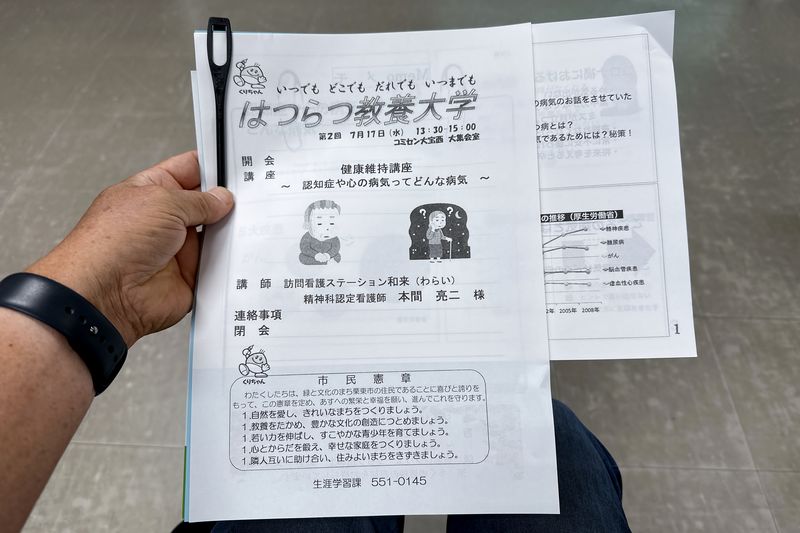 くりちゃん
いつでも どこでも だれでも いつまでも
はつらつ教養大学
第2回 7月17日（水） 13:30-15:00
コミセン大宝西 大集会室
開 会
講 座 健康維持講座
～ 認知症や心の病気ってどんな病気 ～
講 師 訪問看護ステーション和来（わらい）
精神科認定看護師 本間 亮二 様
連絡事項
閉 会
くりちゃん
市 民 憲 章
わたくしたちは、緑と文化のまち栗東市の住民であることに喜びと誇りを
もって、この憲章を定め、あすへの繁栄と幸福を願い、進んでこれを守ります。
1.自然を愛し、きれいなまちをつくりましょう。
1.教養をたかめ、豊かな文化の創造につとめましょう。
1.若い力を伸ばし、すこやかな青少年を育てましょう。
1.心とからだを鍛え、幸せな家庭をつくりましょう。
1.隣人互いに助け合い、住みよいまちをきずきましょう。
生涯学習課 551-0145
の病気のお話をさせていた
つ病とは？
気であるためには？秘策！
の推移（厚生労働省）
精神疾患
糖尿病
がん
脳血管疾患
虚血性心疾患
2年 2005年 2008年
1